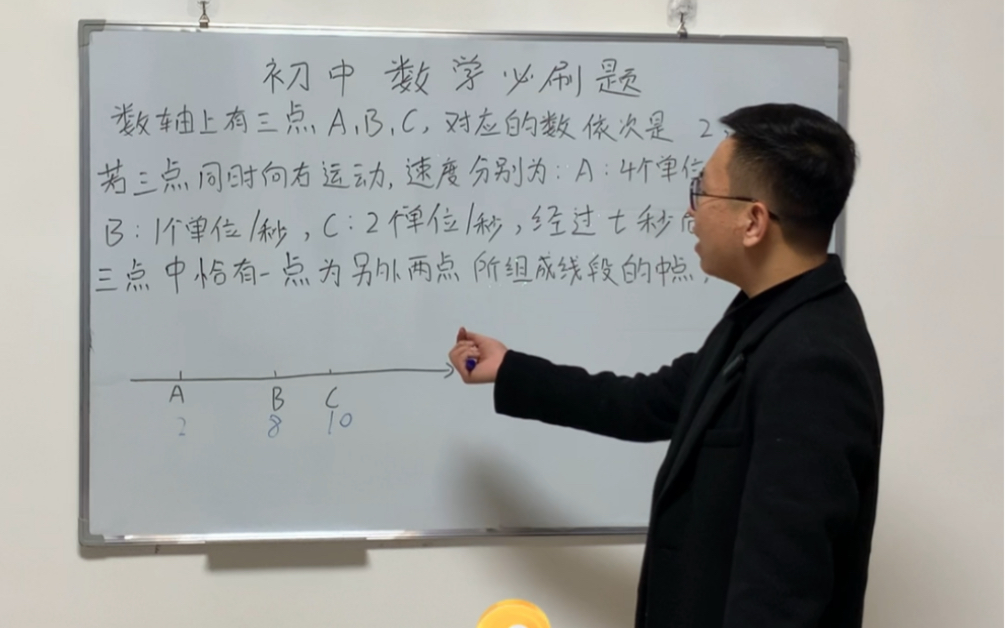 初中数学必刷题
数轴上有三点A,B,C,对应的数依次是 2
若三点同时向右运动,速度分别为:A:4个单位
B:1个单位/秒,C:2个单位/秒,经过t秒
三点中恰有一点为另外两点所组成线段的中点,
A B C
2 8 10